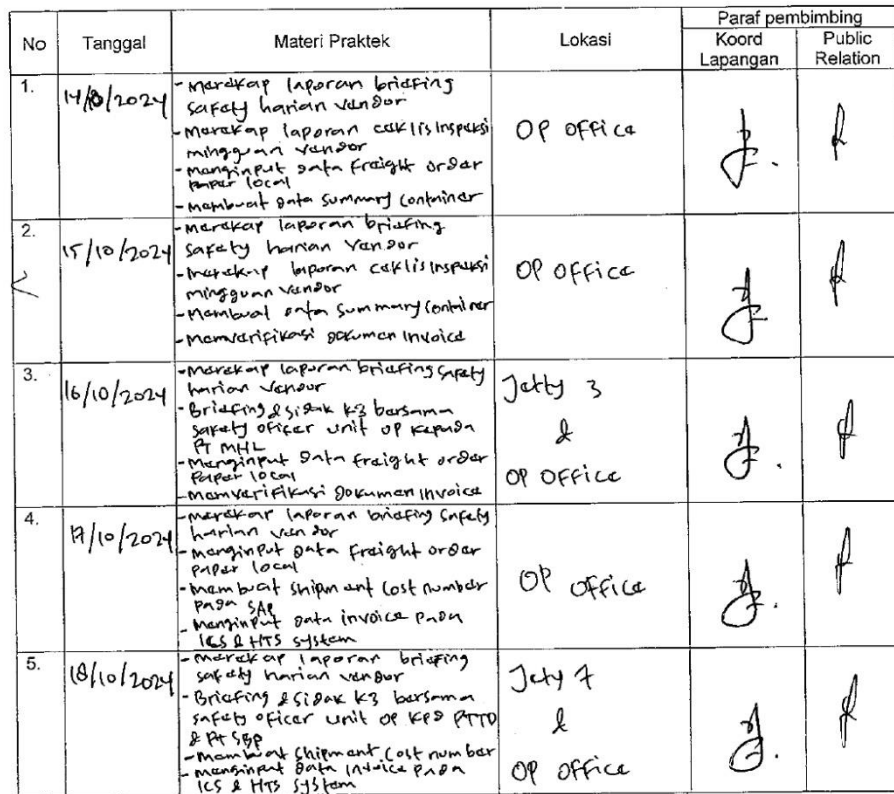 No Tanggal Materi Praktek Lokasi Paraf pembimbing
Koord Lapangan Public Relation
1. 14/10/2024
- Merekap laporan briefing
safety harian vendor
- Merekap laporan ceklis inspeksi
mingguan vendor
- Menginput data freight order
paper local
- Membuat data summary container
OP Office
2. 15/10/2024
- Merekap laporan briefing
safety harian vendor
- Merekap laporan ceklis inspeksi
mingguan vendor
- Membuat data summary container
- Memverifikasi dokumen invoice
OP Office
3. 16/10/2024
- Merekap laporan briefing safety
harian vendor
- Briefing & sidak K3 bersama
safety oficer unit OP kepada
PT MHL
- Menginput data freight order
paper local
- Memverifikasi dokumen invoice
Jetty 3
&
OP Office
4. 17/10/2024
- Merekap laporan briefing safety
harian vendor
- Menginput data freight order
paper local
- Membuat shipment cost number
pada SAP
- Menginput data invoice pada
ICS & HTS system
OP Office
5. 18/10/2024
- Merekap laporan briefing
safety harian vendor
- Briefing & sidak K3 bersama
safety oficer unit OP kpd PTTD
& PT SBP
- Membuat shipment cost number
- Menginput data invoice pada
ICS & HTS system
Jety 7
&
OP Office